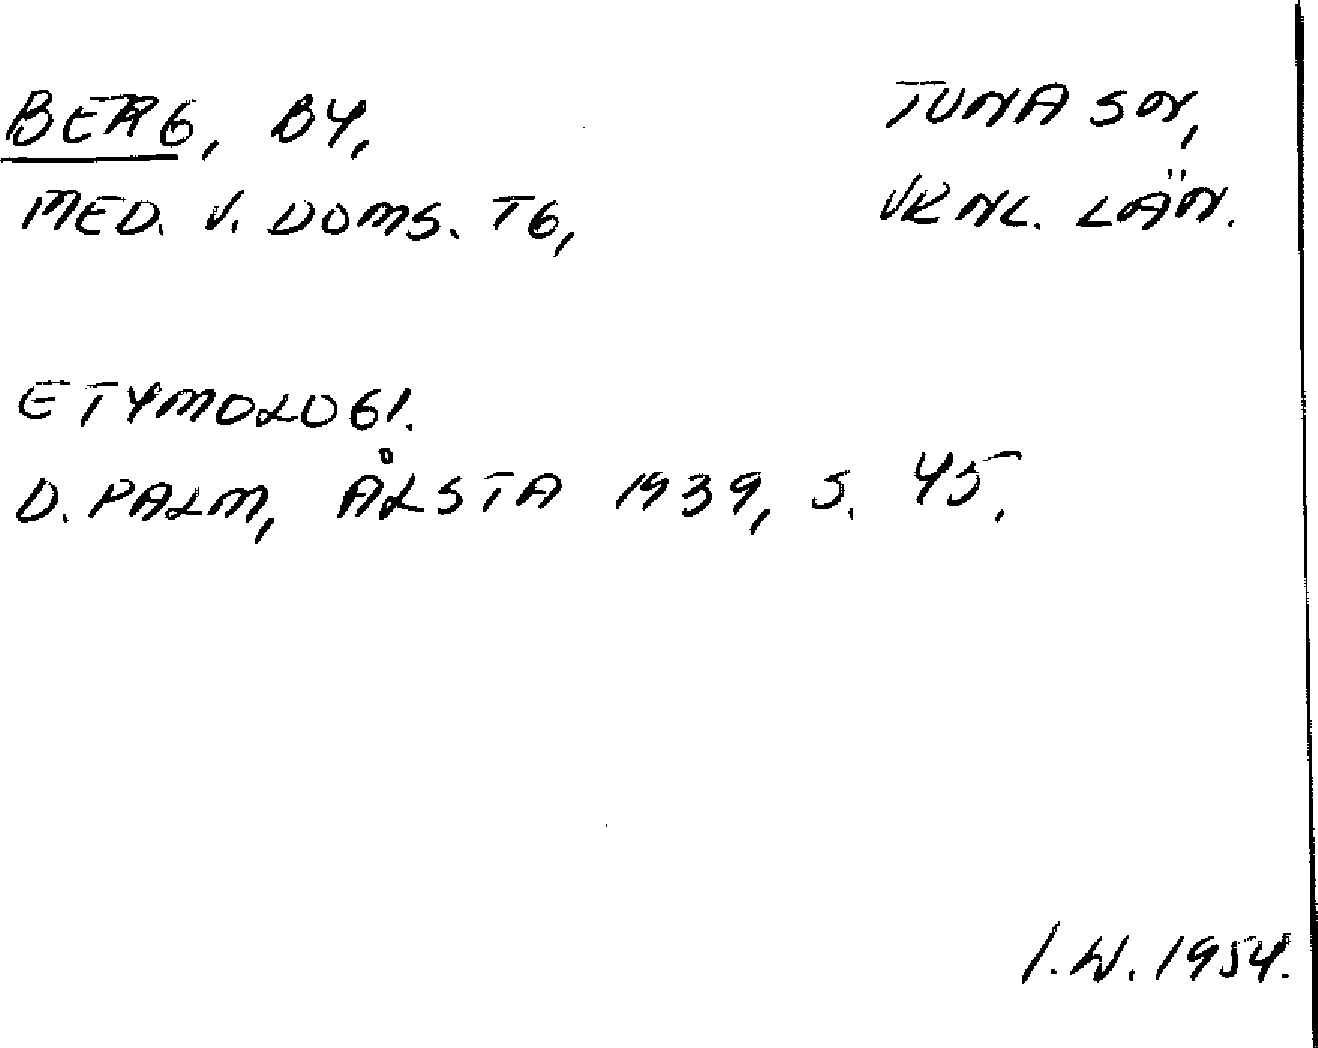 BERG, BY, TUNA SN,
MED. V. DOMS. TG, VRNL. LÄN.
ETYMOLOGI.
D. PALM, ÅLSTA 1939, S. 45.
I.W. 1954.